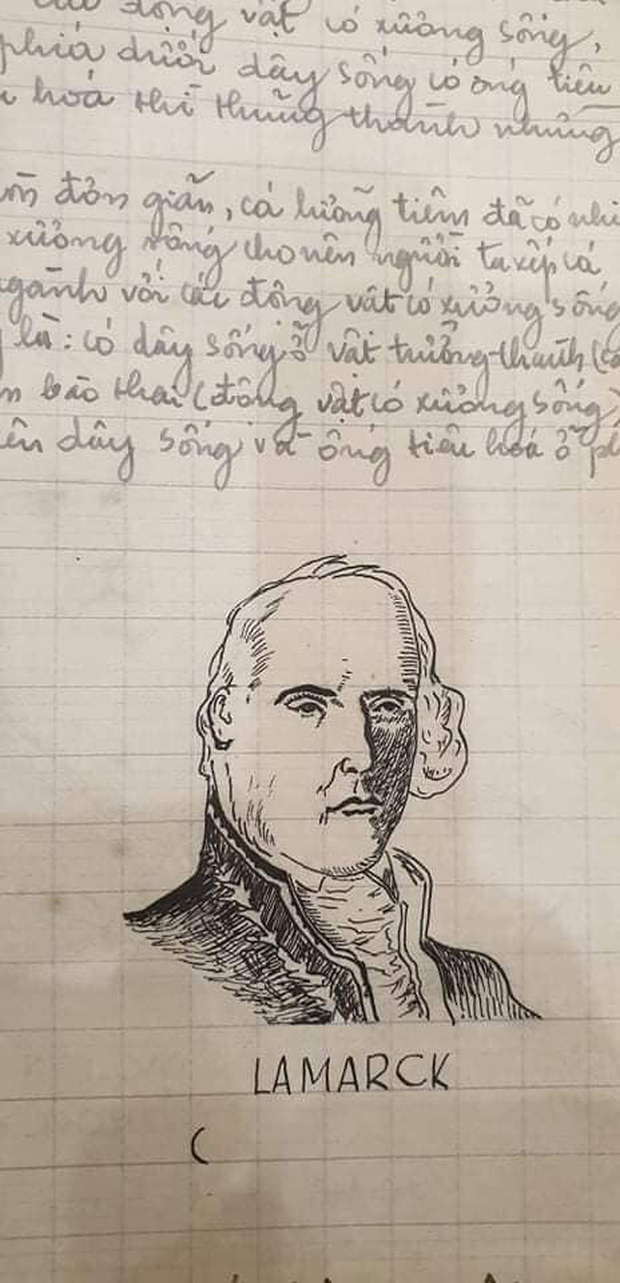 động vật có xương sống,
phía dưới dây sống có ống tiêu
hoá thì thủng thành những
đơn giản, cá lưỡng tiêm đã có nhi
xương sống cho nên người ta xếp cá
ngành với các động vật có xương sống
là: có dây sống ở vật trưởng-thành (cá
bào thai (động vật có xương sống)
ên dây sống và ống tiêu hoá ở ph
LAMARCK
(